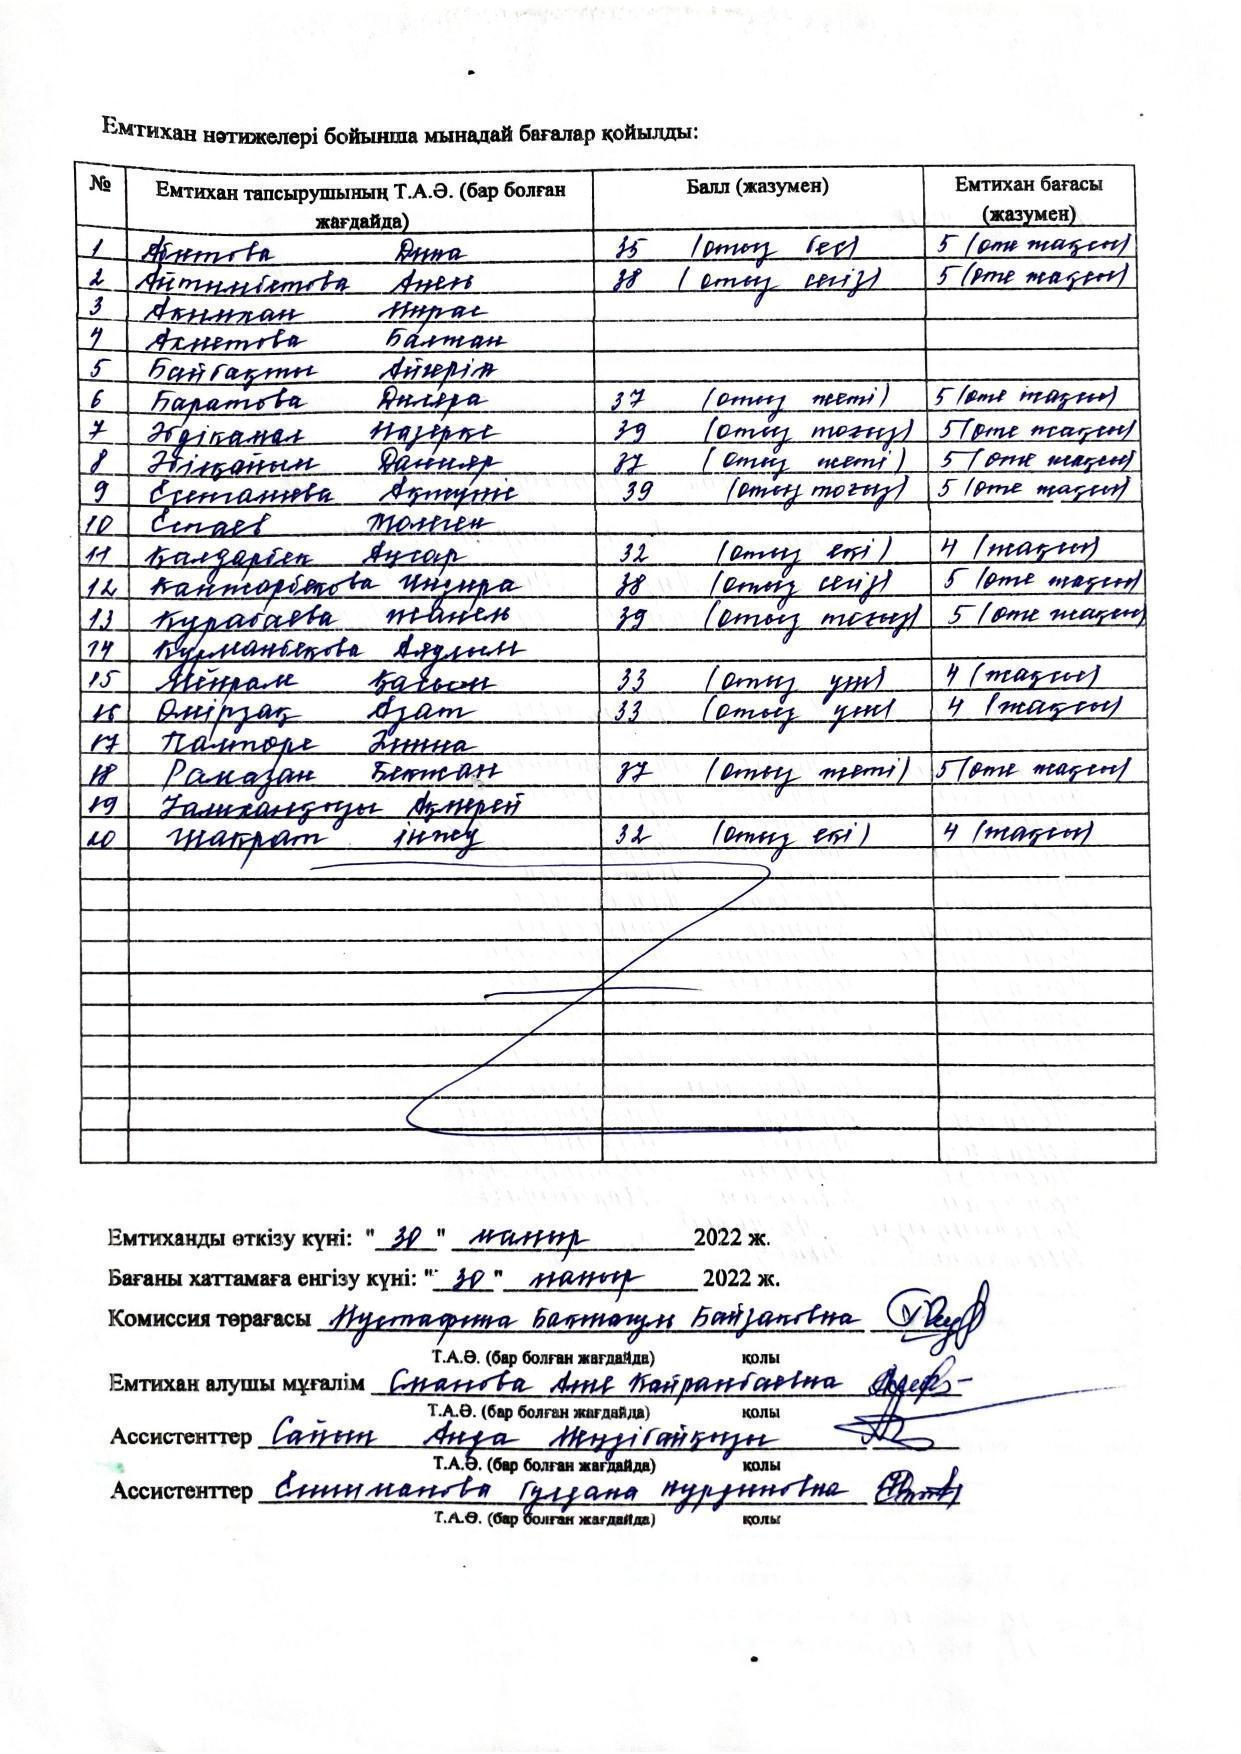 Емтихан нәтижелері бойынша мынадай бағалар қойылды:
№ Емтихан тапсырушының Т.А.Ә. (бар болған жағдайда) Балл (жазумен) Емтихан бағасы (жазумен)
1 Абитова Дина 35 (отыз бес) 5 (өте жақсы)
2 Айтимбетова Анель 38 (отыз сегіз) 5 (өте жақсы)
3 Акимхан Мирас
4 Ахметова Балжан
5 Байбақты Айгерім
6 Баратова Диляра 37 (отыз жеті) 5 (өте жақсы)
7 Әбдікамал Назерке 39 (отыз тоғыз) 5 (өте жақсы)
8 Әбілқайым Данияр 37 (отыз жеті) 5 (өте жақсы)
9 Есенгалиева Ақтүніс 39 (отыз тоғыз) 5 (өте жақсы)
10 Еспаев Төлеген
11 Қалдарбек Аңсар 32 (отыз екі) 4 (жақсы)
12 Кантарбекова Индира 38 (отыз сегіз) 5 (өте жақсы)
13 Курабаева Жанель 39 (отыз тоғыз) 5 (өте жақсы)
14 Курманбекова Аяулым
15 Мейрам Қасым 33 (отыз үш) 4 (жақсы)
16 Өмірзақ Азат 33 (отыз үш) 4 (жақсы)
17 Палторе
18 Рамазан Бекжан 37 (отыз жеті) 5 (өте жақсы)
19 Уалиханқызы Ақмерей
20 Шақрат Інжу 32 (отыз екі) 4 (жақсы)
Емтиханды өткізу күні: "30" мамыр 2022 ж.
Бағаны хаттамаға енгізу күні: "30" мамыр 2022 ж.
Комиссия төрағасы Мустафина Бақтагул Байзаковна
Т.А.Ә. (бар болған жағдайда) қолы
Емтихан алушы мұғалім Сманова Кайранбаевна
Т.А.Ә. (бар болған жағдайда) қолы
Ассистенттер Сайын Аида
Т.А.Ә. (бар болған жағдайда) қолы
Ассистенттер Гулдана Нурдиновна
Т.А.Ә. (бар болған жағдайда) қолы